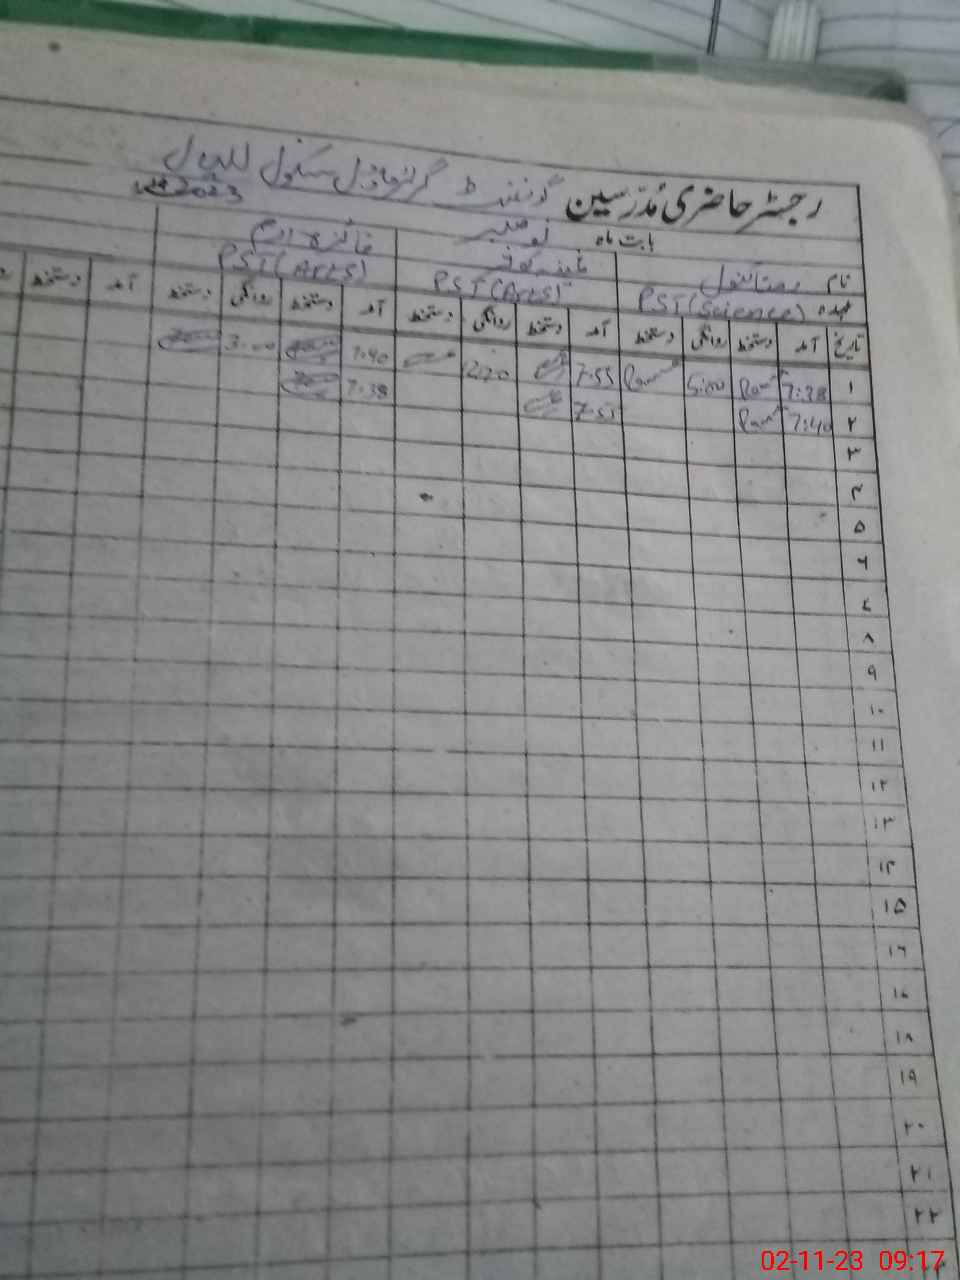 رجسٹر حاضری مدرسین گورنمنٹ گرلز ماڈل سکول
2023
بابت ماہ نومبر
نام
عہدہ PST (Science) PST (Arts) PST (Arts)
تاریخ آمد دستخط روانگی دستخط آمد دستخط روانگی دستخط آمد دستخط روانگی دستخط آمد دستخط
۱ 7:38 5:00 7:55 12:20 7:40 3:00
۲ 7:40 7:55 7:38
۳
۴
۵
۶
۷
۸
۹
۱۰
۱۱
۱۲
۱۳
۱۴
۱۵
۱۶
۱۷
۱۸
۱۹
۲۰
۲۱
۲۲
02-11-23 09:17